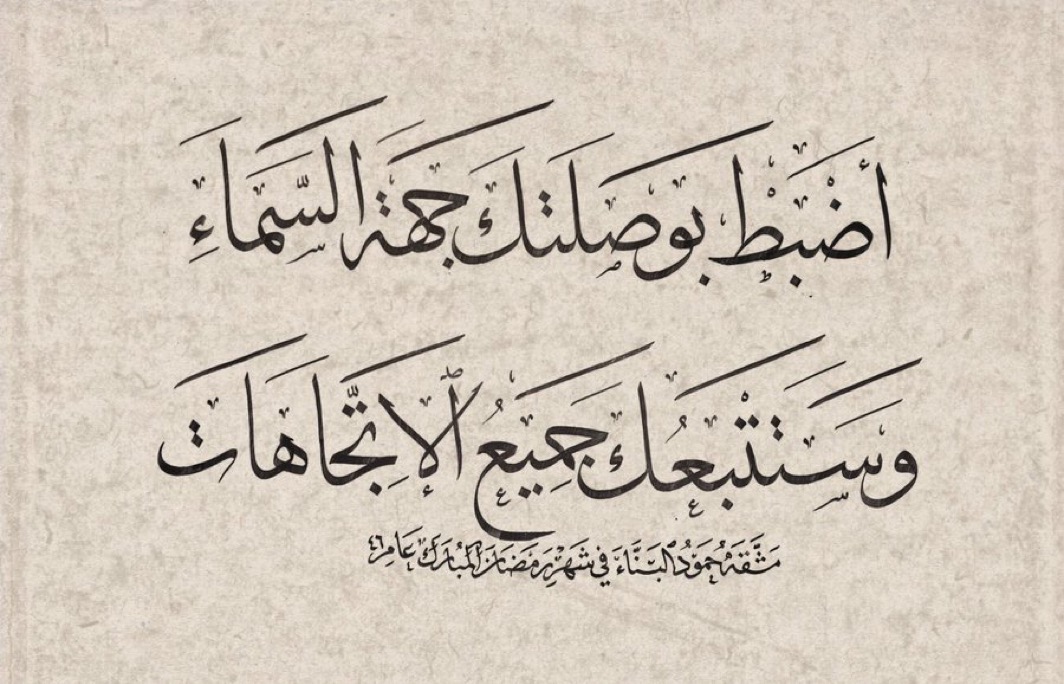 أضبَط بوصَلتَك جهَةَ السَّمَاءِ
وَسَتتْبعُك جَميَعُ ٱلإتِّجَاهَات
مَشَّقَهُ حمَودُ ٱلبَنَّاءَ في شَهْرِ رَمَضَانَ ٱلمُبَارَك عَام ٤٦